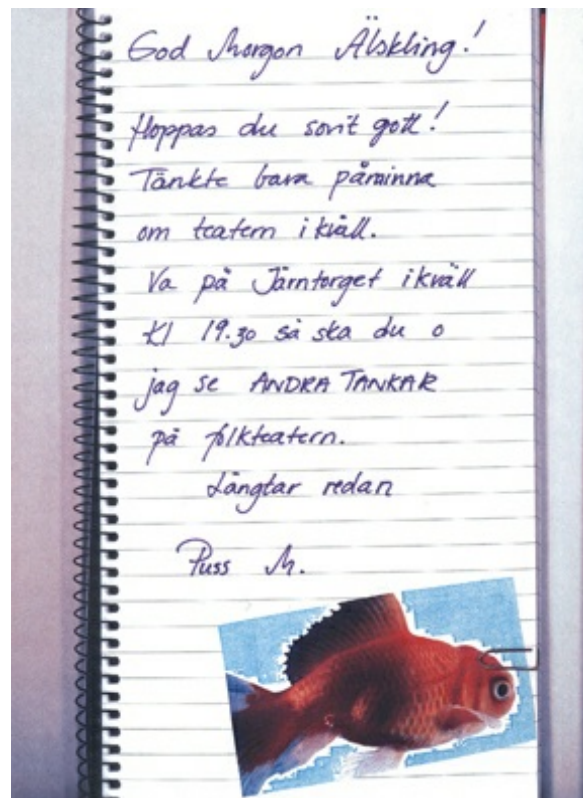 God Morgon Älskling!
Hoppas du sovit gott!
Tänkte bara påminna
om teatern ikväll.
Va på Järntorget ikväll
Kl 19.30 så ska du o
jag se ANDRA TANKAR
på folkteatern.
Längtar redan
Puss M.